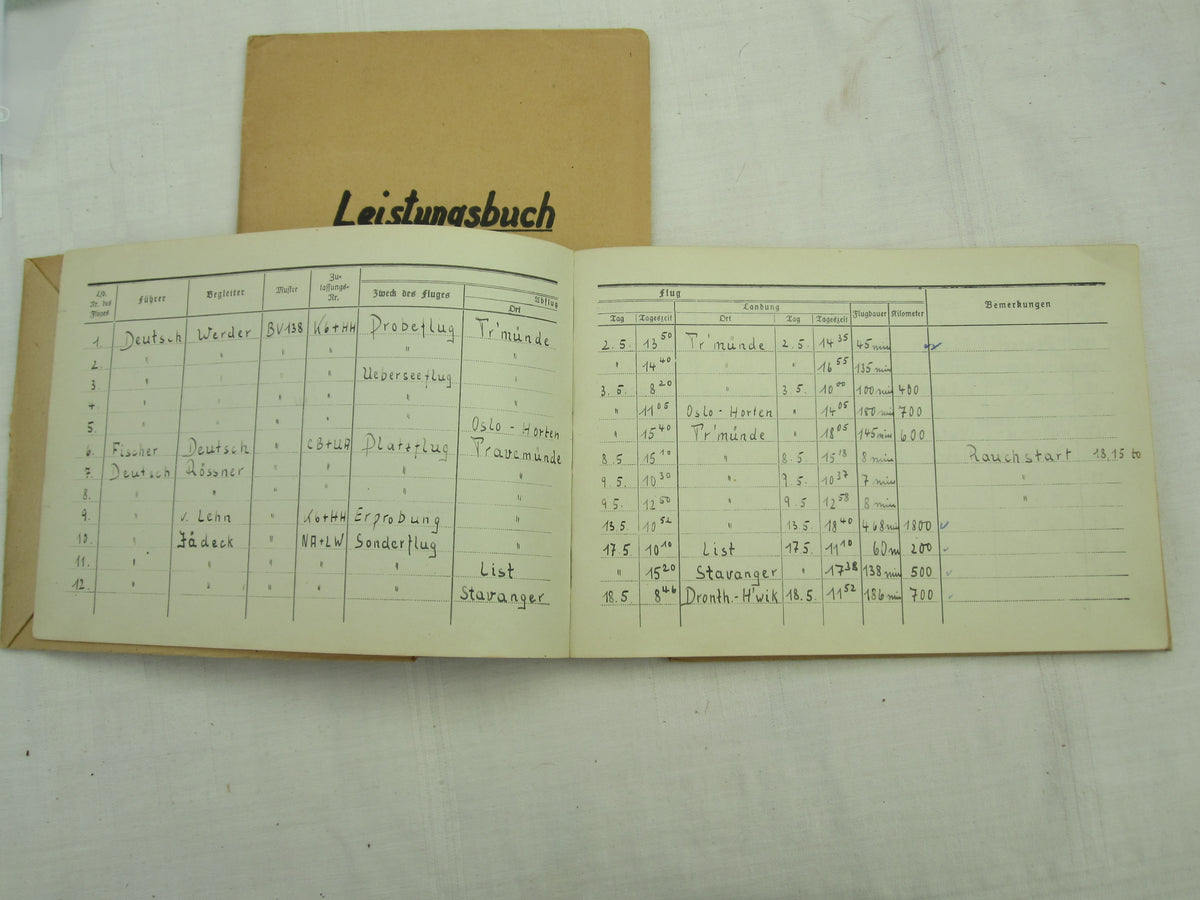 Leistungsbuch
Lfd. Nr. des Fluges Führer Begleiter Muster Zulassungs-Nr. Zweck des Fluges Abflug Ort
Flug
Landung
Tag Tageszeit Ort Tag Tageszeit Flugdauer Kilometer Bemerkungen
1. Deutsch Werder BV138 K6+HH Probeflug Tr'münde 2.5. 13 50 Tr'münde 2.5. 14 35 45 min
2. " " " " " " " 14 40 " " 16 55 135 min
3. " " " " Ueberseeflug " 3.5. 8 20 " 3.5. 10 00 100 min 400
4. " " " " " " " 11 05 Oslo - Horten " 14 05 180 min 700
5. " " " " " Oslo - Horten " 15 40 Tr'münde " 18 05 145 min 600
6. Fischer Deutsch " CB+UA Platzflug Travemünde 8.5 15 10 " 8.5. 15 18 8 min Rauchstart 18,15 to
7. Deutsch Rössner " " " " 9.5. 10 30 " 9.5. 10 37 7 min "
8. " " " " " " 9.5. 12 50 " 9.5 12 58 8 min "
9. " v. Lehn " K6+HH Erprobung " 13.5. 10 52 " 13.5. 18 40 468 min 1800
10. " Jädeck " NA+LW Sonderflug " 17.5. 10 10 List 17.5. 11 10 60 m 200
11. " " " " " List " 15 20 Stavanger " 17 38 138 min 500
12. " " " " " Stavanger 18.5. 8 46 Dronth.-H'wik 18.5. 11 52 186 min 700